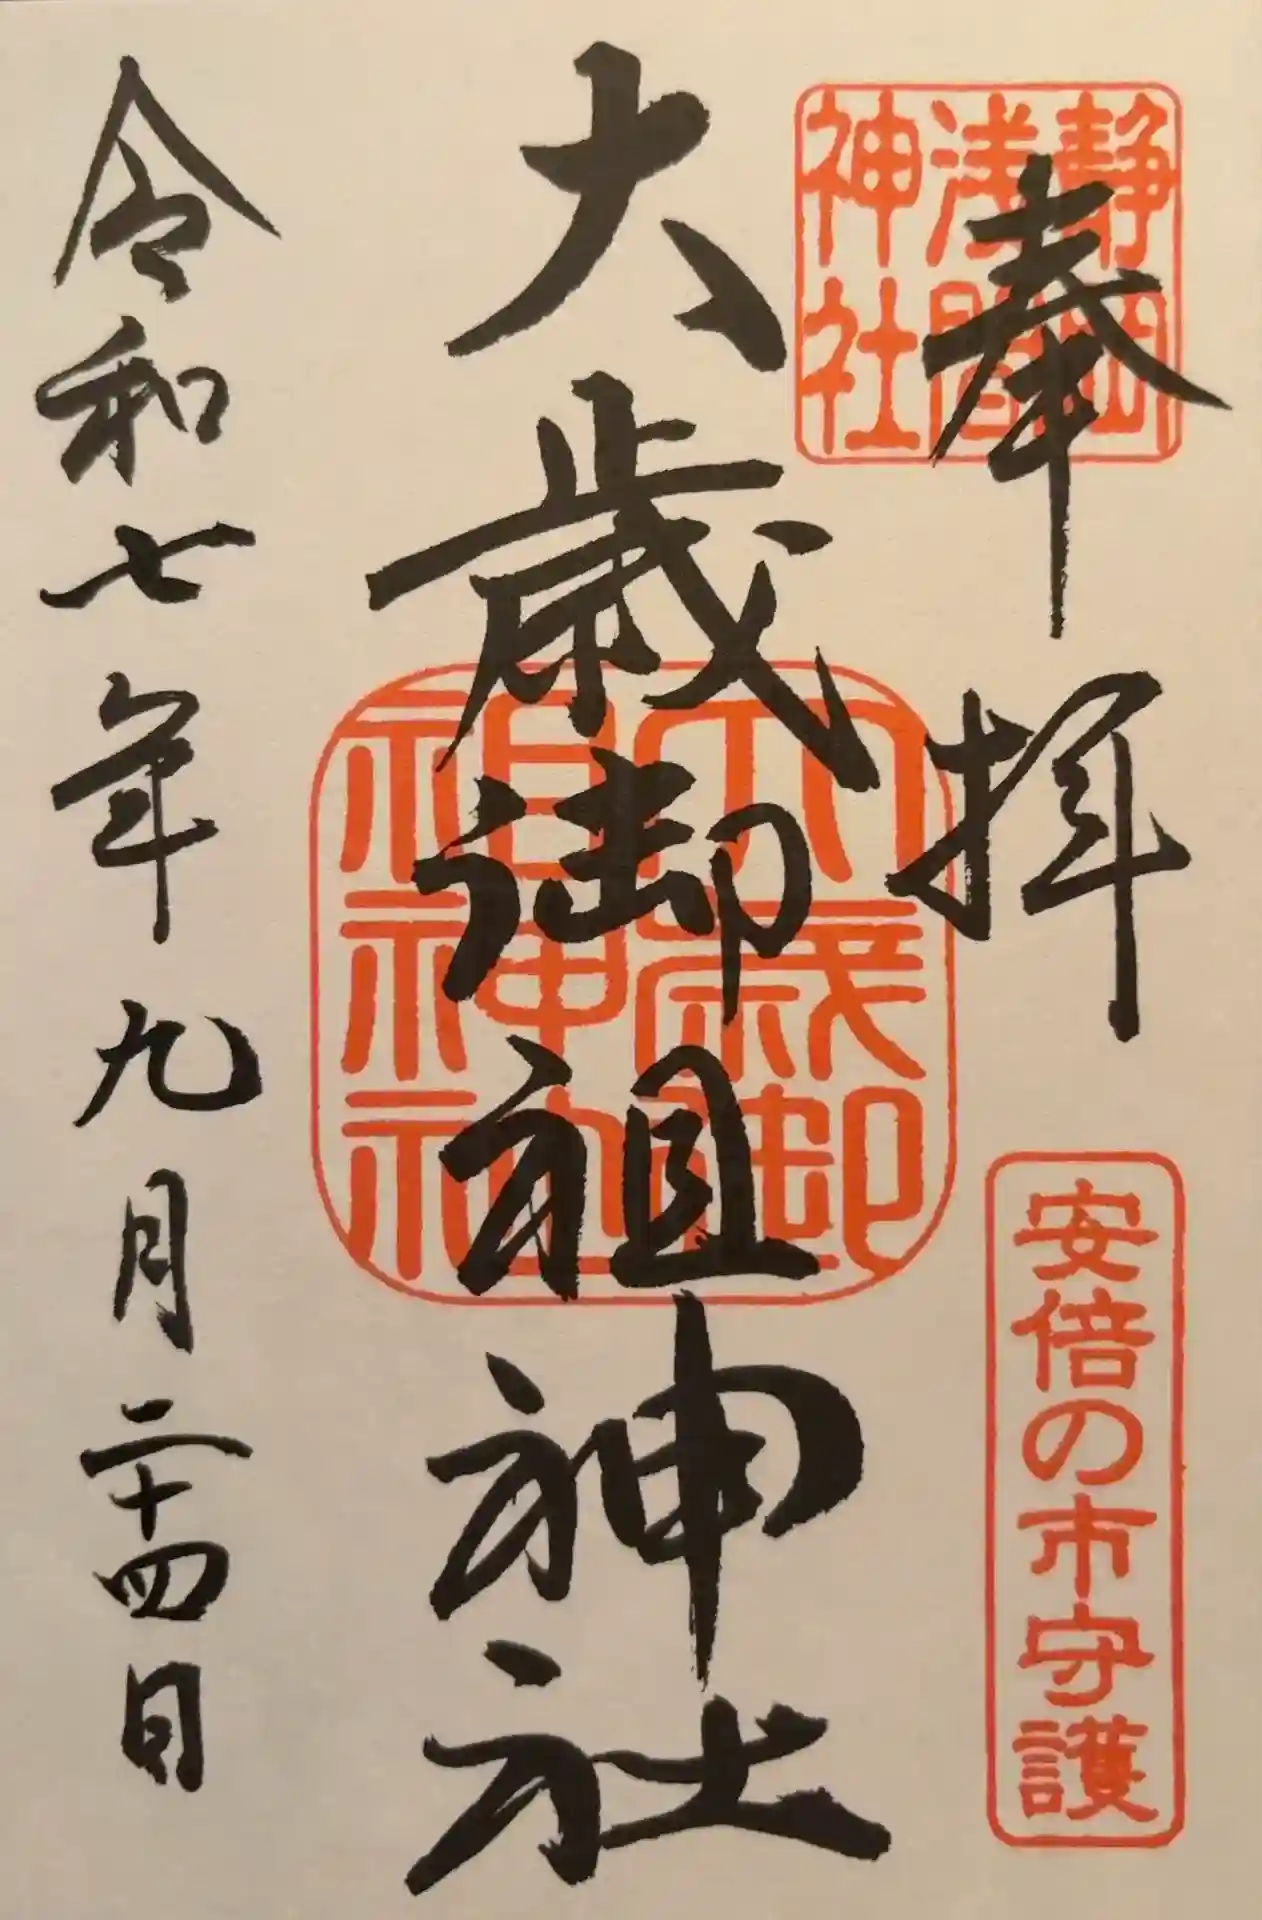 奉拝
静岡
浅間
神社
安倍の市守護
大歳御祖神社
大歳御
祖神社
令和七年九月二十四日